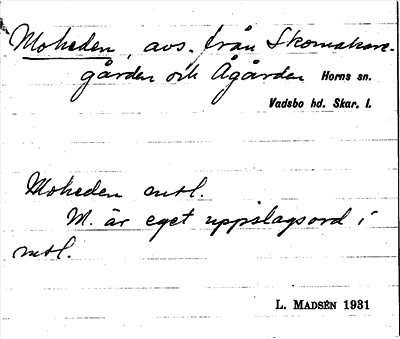 Moheden, avs. från Skomakare-
gården och Ågården Horns sn.
Vadsbo hd. Skar. l.
Moheden mtl.
M. är eget uppslagsord i
mtl.
L. MADSÉN 1931